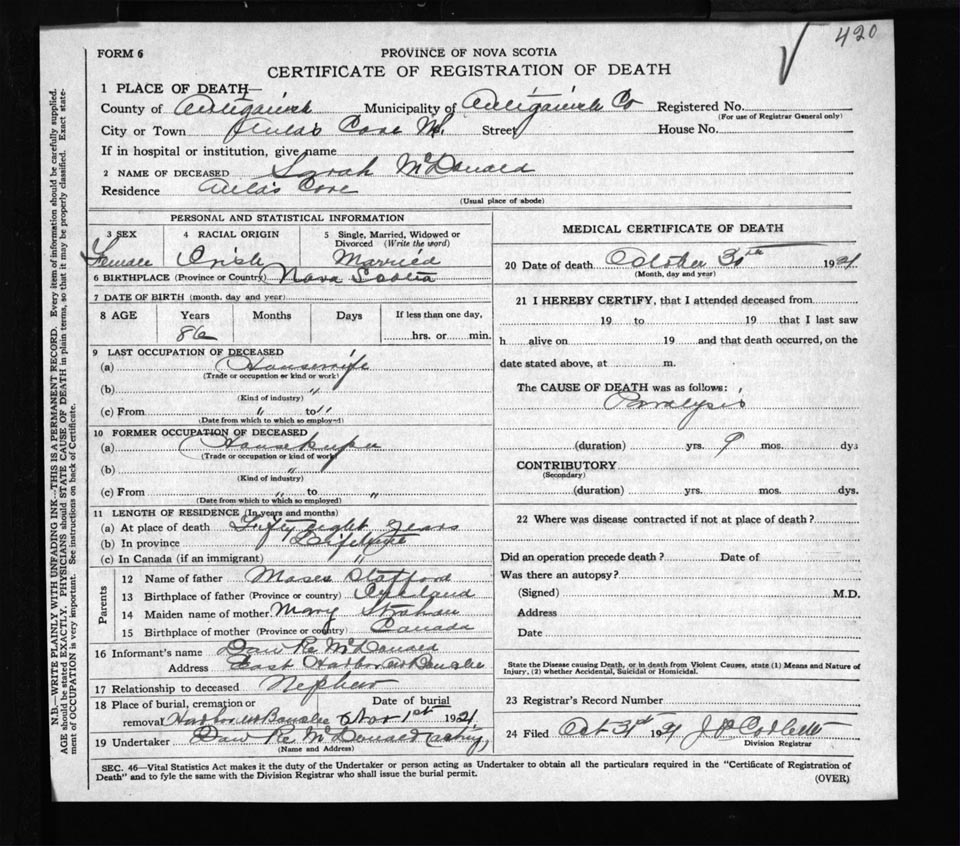 420
FORM 6
PROVINCE OF NOVA SCOTIA
CERTIFICATE OF REGISTRATION OF DEATH
1 PLACE OF DEATH—
County of Antigonish Municipality of Antigonish Co Registered No.
(For use of Registrar General only)
City or Town Cove Street House No.
If in hospital or institution, give name
2 NAME OF DECEASED Sarah McDonald
Residence Cove
(Usual place of abode)
PERSONAL AND STATISTICAL INFORMATION
3 SEX 4 RACIAL ORIGIN 5 Single, Married, Widowed or Divorced (Write the word)
Female Irish Married
6 BIRTHPLACE (Province or Country) Nova Scotia
7 DATE OF BIRTH (month, day and year)
8 AGE Years Months Days If less than one day,
86 hrs. or min.
9 LAST OCCUPATION OF DECEASED
(a) Housewife
(Trade or occupation or kind or work)
(b) "
(Kind of industry)
(c) From " to "
(Date from which to which so employed)
10 FORMER OCCUPATION OF DECEASED
(a) Housekeeper
(Trade or occupation or kind of work)
(b) "
(Kind of industry)
(c) From " to "
(Date from which to which so employed)
11 LENGTH OF RESIDENCE (In years and months)
(a) At place of death Fifty eight years
(b) In province Lifetime
(c) In Canada (if an immigrant) "
Parents
12 Name of father Moses Stafford
13 Birthplace of father (Province or country)
14 Maiden name of mother Mary Strahan
15 Birthplace of mother (Province or country) Canada
16 Informant's name McDonald
Address East Harbor
17 Relationship to deceased Nephew
18 Place of burial, cremation or Date of burial
removal Harbor Nov 1st 1921
19 Undertaker McDonald
(Name and Address)
MEDICAL CERTIFICATE OF DEATH
20 Date of death October 30th 1921
(Month, day and year)
21 I HEREBY CERTIFY, that I attended deceased from
19 to 19 that I last saw
h alive on 19 and that death occurred, on the
date stated above, at m.
The CAUSE OF DEATH was as follows:
Paralysis
(duration) yrs. 9 mos. dys
CONTRIBUTORY
(Secondary)
(duration) yrs. mos. dys.
22 Where was disease contracted if not at place of death?
Did an operation precede death? Date of
Was there an autopsy?
(Signed) M.D.
Address
Date
State the Disease causing Death, or in death from Violent Causes, state (1) Means and Nature of
Injury, (2) whether Accidental, Suicidal or Homicidal.
23 Registrar's Record Number
24 Filed Oct 31st 1921 J P Corbett
Division Registrar
SEC. 46—Vital Statistics Act makes it the duty of the Undertaker or person acting as Undertaker to obtain all the particulars required in the "Certificate of Registration of
Death" and to fyle the same with the Division Registrar who shall issue the burial permit.
(OVER)
N.B.—WRITE PLAINLY WITH UNFADING INK—THIS IS A PERMANENT RECORD. Every item of information should be carefully supplied.
AGE should be stated EXACTLY. PHYSICIANS should STATE CAUSE OF DEATH in plain terms, so that it may be properly classified. Exact state-
ment of OCCUPATION is very important. See instructions on back of Certificate.